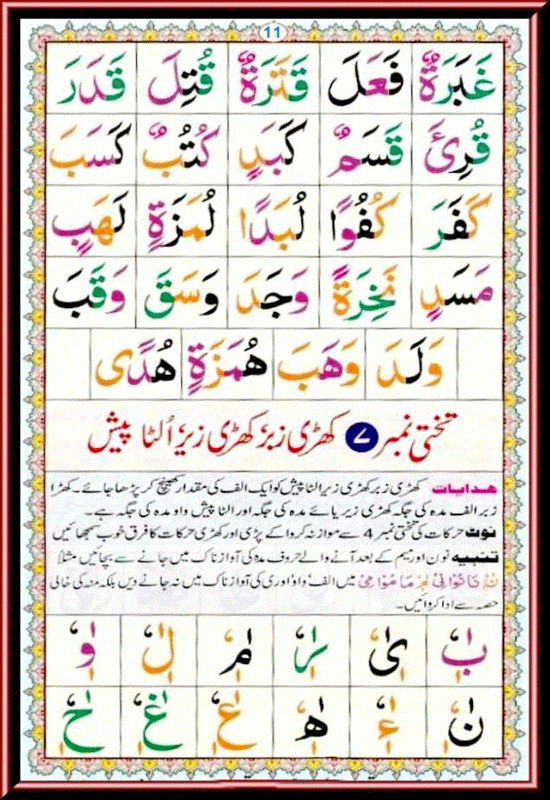 11
غَبَرَةٌ فَعَلَ قَتَرَةٌ قُتِلَ قَدَرَ
قُرِئَ قَسَمٌ كَبَدٍ كُتُبٌ كَسَبَ
كَفَرَ كُفُوًا لُبَدًا لُمَزَةٍ لَهَبٍ
مَسَدٍ نَخِرَةً وَجَدَ وَسَقَ وَقَبَ
وَلَدَ وَهَبَ هُمَزَةٍ هُدًى
تختی نمبر ۷ کھڑی زبر کھڑی زیر اُلٹا پیش
ھدایات کھڑی زبر کھڑی زیر الٹا پیش کو ایک الف کی مقدار کھینچ کر پڑھا جائے۔ کھڑا
زبر الف مدہ کی جگہ کھڑی زیر یائے مدہ کی جگہ اور الٹا پیش واو مدہ کی جگہ ہے۔
نوٹ حرکات کی تختی نمبر 4 سے موازنہ کروا کے پڑی اور کھڑی حرکات کا فرق خوب سمجھائیں
تنبیه نون اور میم کے بعد آنے والے حروف مدہ کی آواز ناک میں جانے سے بچائیں مثلا
نَا نُوْا نِیْ مَا مُوْا مِیْ میں الف واؤ اور ی کی آواز ناک میں نہ جانے دیں بلکہ منہ کی خالی
حصہ سے ادا کروائیں۔
بٰٖٗ یٰٖٗ رٰٖٗ مٰٖٗ لٰٖٗ وٰٖٗ
نٰٖٗ ءٰٖٗ هٰٖٗ عٰٖٗ غٰٖٗ حٰٖٗ